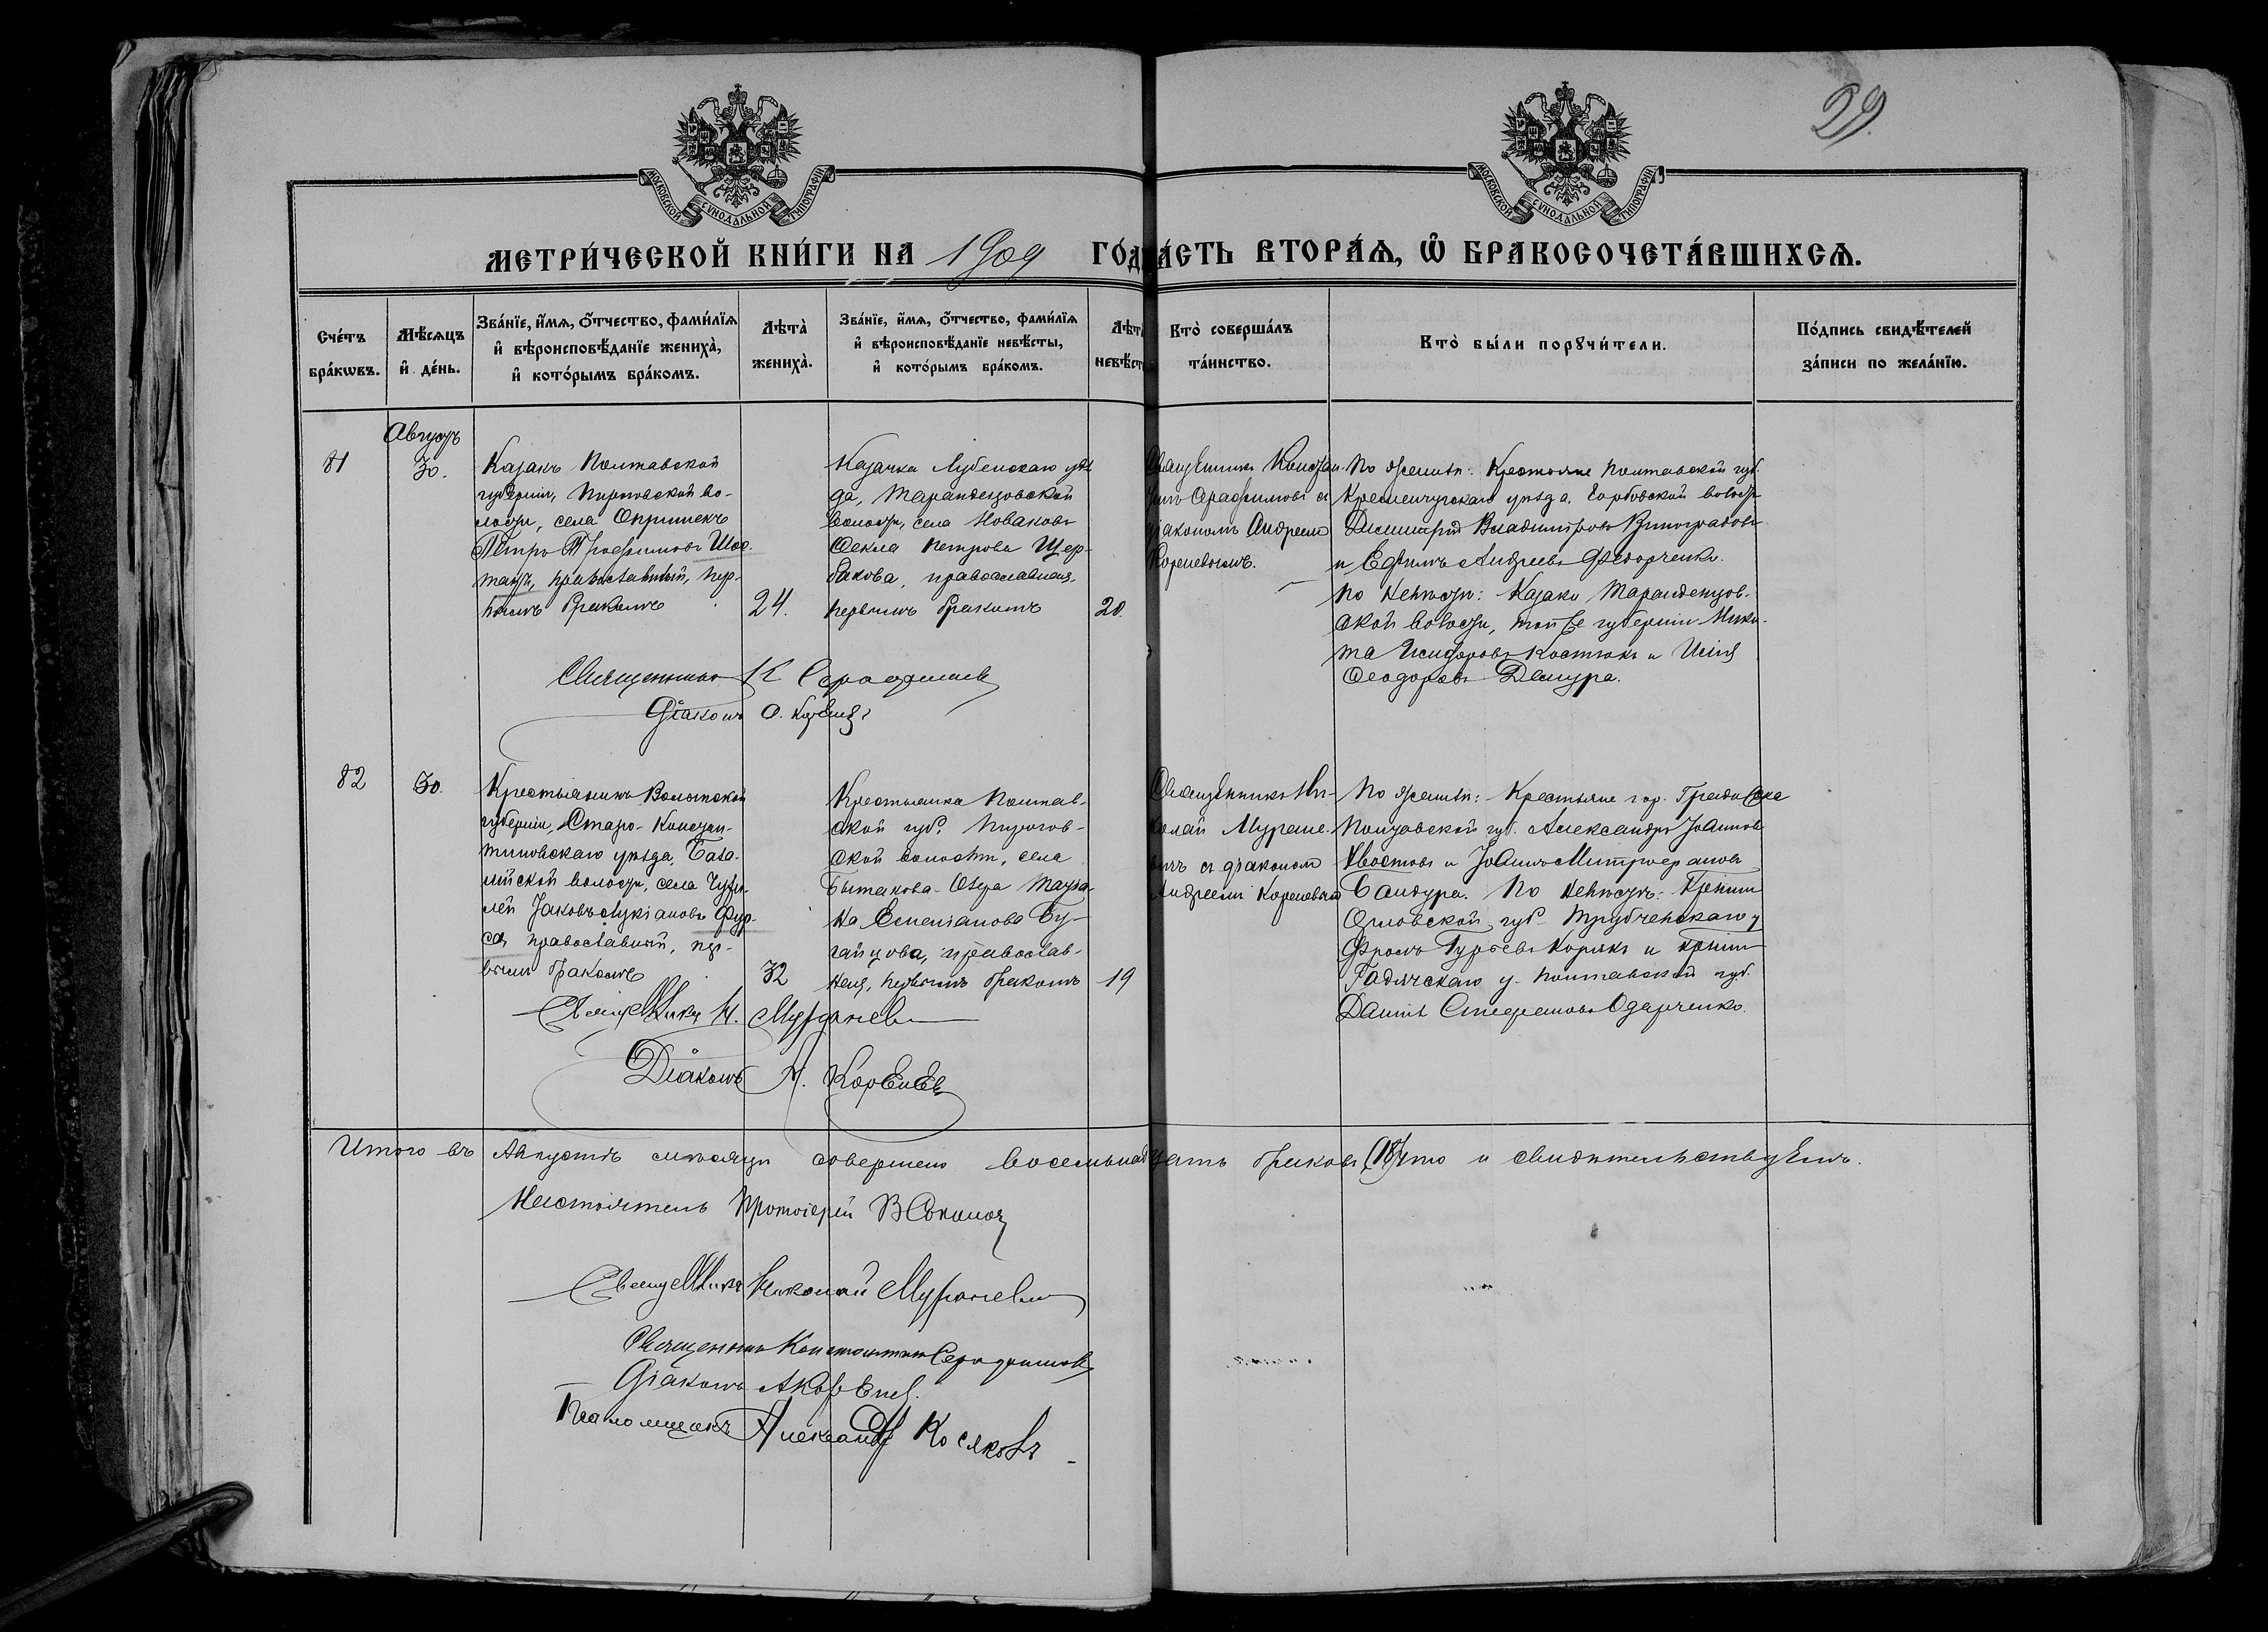 29.
МОСКОВСКОЙ СѴНОДАЛЬНОЙ ТИПОГРАФІИ
МОСКОВСКОЙ СѴНОДАЛЬНОЙ ТИПОГРАФІИ
МЕТРИ́ЧЕСКОЙ КНИ́ГИ НА 1909 ГО́Д
А́СТЬ ВТОРА́Ѧ, Ѽ БРАКОСОЧЕТА́ВШИХСѦ.
Сче́тъ бра́кѡвъ.
Мѣ́сѧцъ и҆ де́нь.
Зва́нїе, и҆́мѧ, ѻ҆́тчество, фами́лїѧ и҆ вѣроисповѣ́данїе жениха̀, и҆ кото́рымъ бра́комъ.
Лѣта̀ жениха̀.
Зва́нїе, и҆́мѧ, ѻ҆́тчество, фами́лїѧ и҆ вѣроисповѣ́данїе невѣ́сты, и҆ кото́рымъ бра́комъ.
Лѣт невѣ́ст
Кто̀ соверша́лъ та́инство.
Кто̀ бы́ли порꙋчи́тели.
По́дпись свидѣ́телей за́писи по жела́нїю.
81
Августъ
30.
Казакъ Полтавской
губерніи, Пироговской во-
лости, села Опришекъ
Петръ Трофимовъ Шос-
такъ, православный, пер-
вымъ бракомъ
24.
Казачка Лубенскаго уѣз
да, Тарандецовской
волости, села Новаковъ
Ѳекла Петрова Щер-
бакова, православная,
первымъ бракомъ
20.
Священникъ Констан-
тинъ Серафимовъ съ
діакономъ Андреемъ
Кореневымъ.
По женихѣ: Крестьяне Полтавской губ.
Кременчугскаго уѣзда, Горбовской волости
Димитрій Владиміровъ Виноградовъ
и Ефимъ Андреевъ Федорченко.
По невѣстѣ: Казаки Тарандецов-
ской волости, той же губерніи Мики-
та Исидоровъ Костюкъ и Илія
Ѳеодоровъ Демура.
Священникъ К Серафимовъ
Діаконъ А. Кореневъ
82
30.
Крестьянинъ Волынской
губерніи, Старо-Констан-
тиновскаго уѣзда, База-
лійской волости, села
Іаковъ Лукіановъ Фур-
са православный, пер-
вымъ бракомъ
32
Крестьянка Полтав-
ской губ. Пирогов-
ской волости, села
Бугакова
на Емеліанова Бу-
гайцова, православ-
ная, первымъ бракомъ
19
Священникъ Ни-
колай Муране-
вичъ съ діакономъ
Андреемъ Кореневымъ
По женихѣ: Крестьяне гор. Градижска
Полтавской губ. Александръ Іоанновъ
Хвостовъ и Іоаннъ Митрофановъ
Бандура. По невѣстѣ: Кр-нинъ
Орловской губ. Трубчевскаго у
Фролъ Гурьевъ Корякъ и кр-нинъ
Гадячскаго у. Полтавской губ.
Даніилъ Стефановъ Одарченко.
Священникъ Н. Мураневичъ
Діаконъ А. Кореневъ
Итого въ Августѣ мѣсяцѣ совершено восемьнадцать браковъ (18) что и свидѣтельствуемъ.
Настоятель Протоіерей В Соколовъ
Священникъ Николай Мураневичъ
Священникъ Константинъ Серафимовъ
Діаконъ А Кореневъ.
Псаломщикъ Александръ Косяковъ